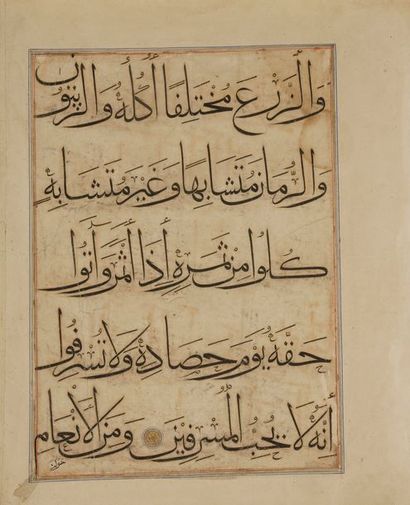 وَالزَّرْعَ مُخْتَلِفًا أُكُلُهُ وَالزَّيْتُونَ
وَالرُّمَّانَ مُتَشَابِهًا وَغَيْرَ مُتَشَابِهٍ
كُلُوا مِنْ ثَمَرِهِ إِذَا أَثْمَرَ وَآتُوا
حَقَّهُ يَوْمَ حَصَادِهِ وَلَا تُسْرِفُوا
إِنَّهُ لَا يُحِبُّ الْمُسْرِفِينَ وَمِنَ الْأَنْعَامِ